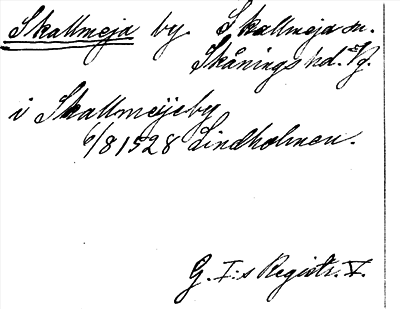 Skallmeja by. Skallmeja sn.
Skånings hd. Vg.
i Skallmeijeby
6/8 1528 Lindholmen.
G. I:s Registr. V.